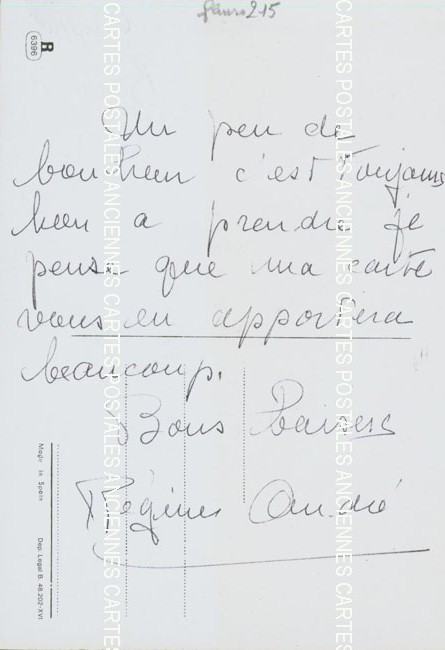 215
R
6396
Un peu de
bonheur c'est toujours
bon a prendre je
pense que ma carte
vous en apportera
beaucoup.
Bons Baisers
Régine André
Made in Spain
Dep. Legal B. 48.202-XVI
CARTES POSTALES ANCIENNES CARTES
CARTES POSTALES ANCIENNES CARTES